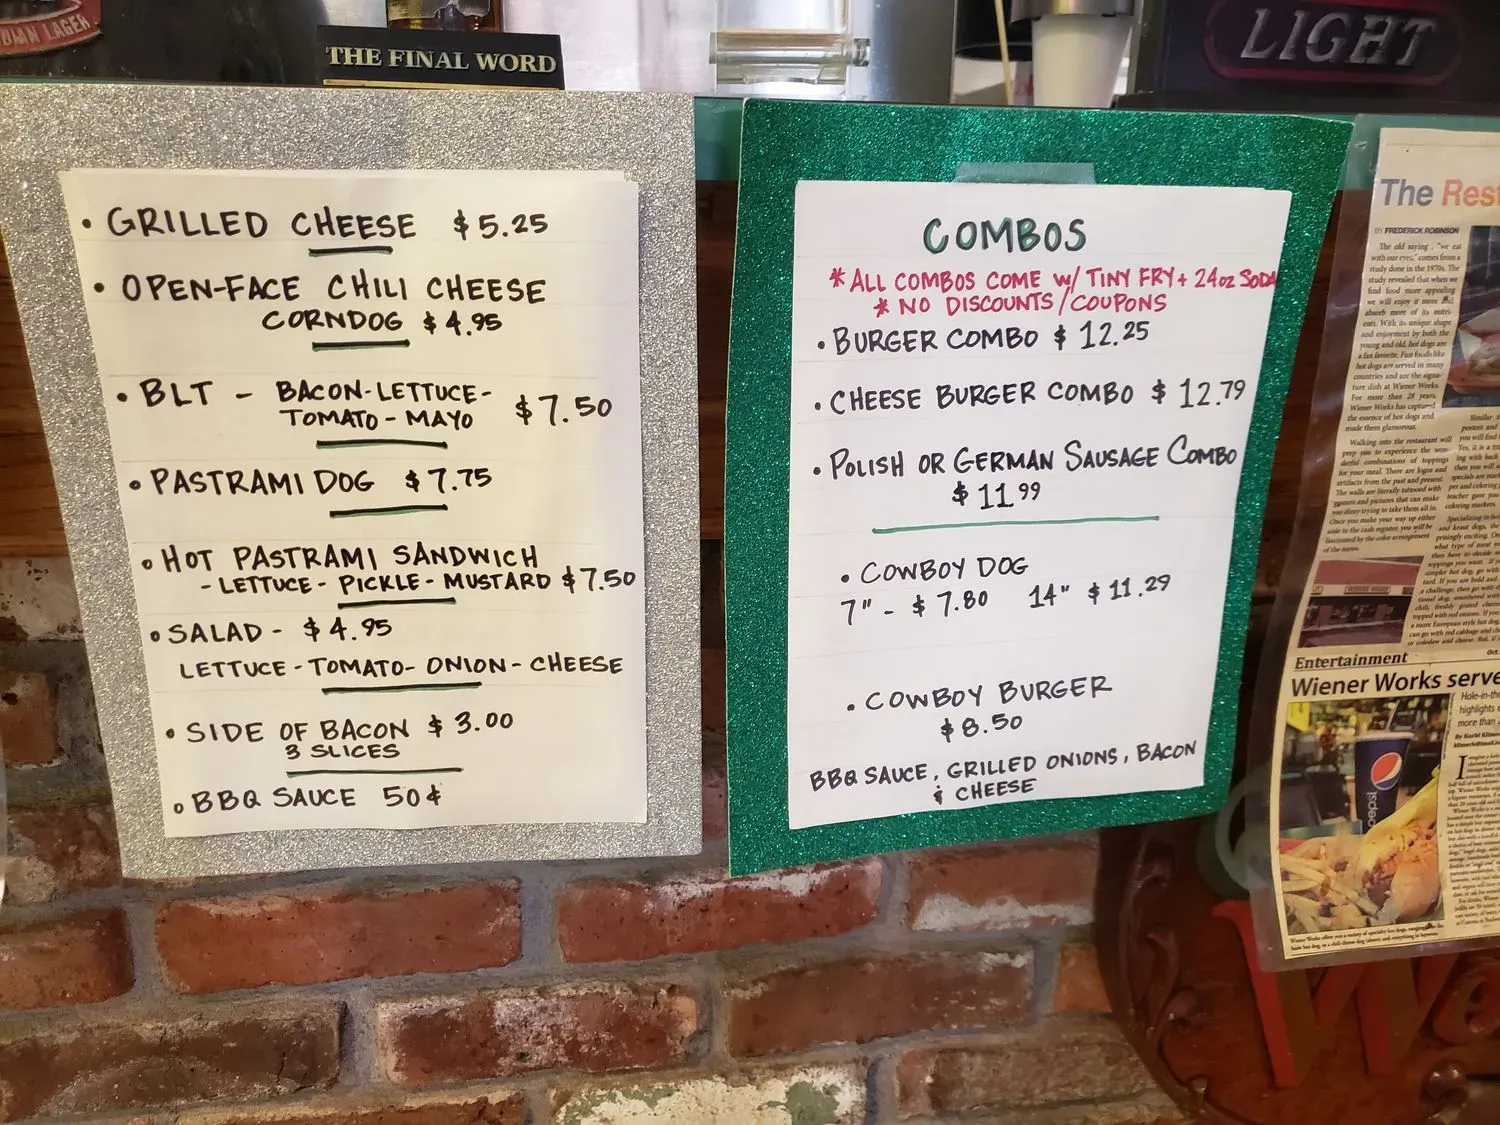 UMN LAGER
THE FINAL WORD
LIGHT
• GRILLED CHEESE $5.25
• OPEN-FACE CHILI CHEESE
CORNDOG $4.95
• BLT - BACON-LETTUCE-
TOMATO-MAYO $7.50
• PASTRAMI DOG $7.75
• HOT PASTRAMI SANDWICH
- LETTUCE - PICKLE - MUSTARD $7.50
• SALAD - $4.95
LETTUCE - TOMATO - ONION - CHEESE
• SIDE OF BACON $3.00
3 SLICES
• BBQ SAUCE 50¢
COMBOS
* ALL COMBOS COME W/ TINY FRY + 24oz SODA
* NO DISCOUNTS/COUPONS
• BURGER COMBO $12.25
• CHEESE BURGER COMBO $12.79
• POLISH OR GERMAN SAUSAGE COMBO
$11.99
• COWBOY DOG
7" - $7.80 14" $11.29
• COWBOY BURGER
$8.50
BBQ SAUCE, GRILLED ONIONS, BACON
& CHEESE
The Rest
BY FREDERICK ROBINSON
The old saying, "we eat
with our eyes," comes from a
study done in the 1970s. The
study revealed that when we
find food more appealing
we will enjoy it more and
absorb more of its nutri-
ents. With its unique shape
and enjoyment by both the
young and old, hot dogs are
a fan favorite. Fun foods like
hot dogs are served in many
countries and are the signa-
ture dish at Wiener Works.
For more than 28 years,
Wiener Works has captured
the essence of hot dogs and
made them glamorous.
Walking into the restaurant will
prep you to experience the won-
derful combinations of toppings
for your meal. There are logos and
artifacts from the past and present.
The walls are literally tattooed with
posters and pictures that can make
you dizzy trying to take them all in.
Once you make your way up either
aisle to the cash register, you will be
fascinated by the color arrangement
of the menu.
Entertainment
Oct.
Wiener Works serve
Hole-in-the
highlights
more than
pepsi
W